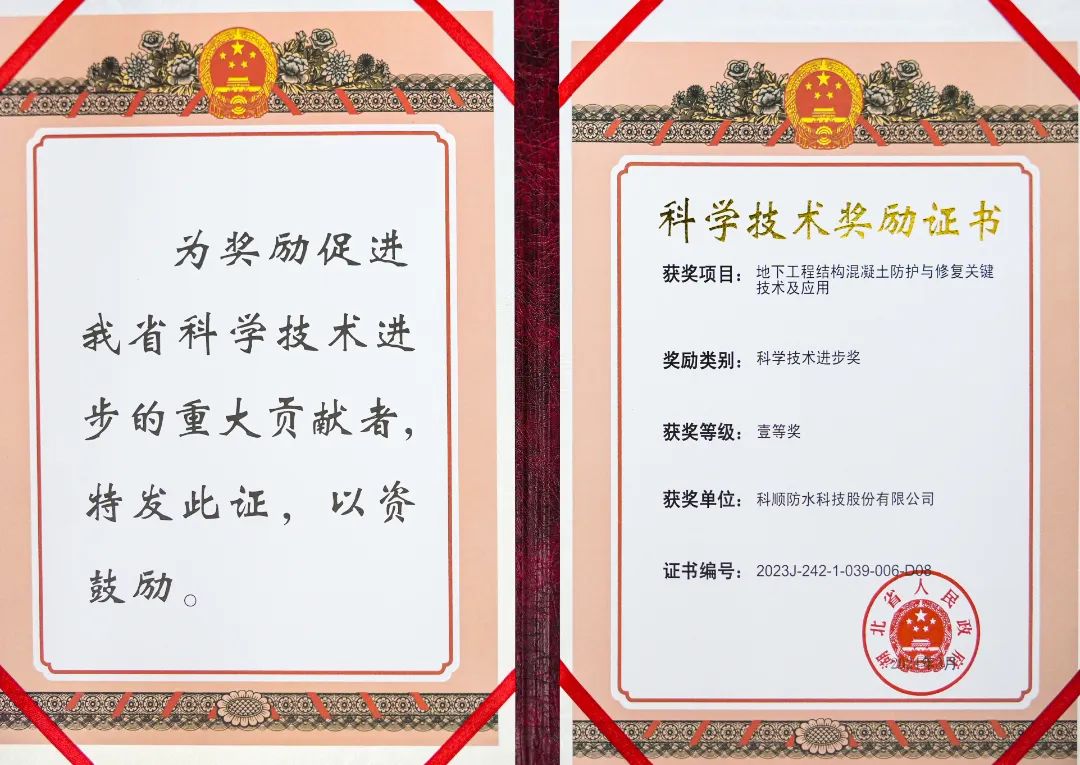 为奖励促进
我省科学技术进
步的重大贡献者，
特发此证，以资
鼓励。
科学技术奖励证书
获奖项目： 地下工程结构混凝土防护与修复关键
技术及应用
奖励类别： 科学技术进步奖
获奖等级： 壹等奖
获奖单位： 科顺防水科技股份有限公司
证书编号： 2023J-242-1-039-006-D08
湖北省人民政府